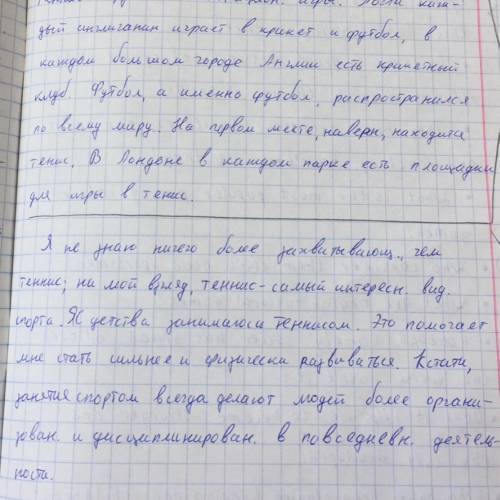 игры. Почти каж-
дый англичанин играет в крикет и футбол, в
каждом большом городе Англии есть крикетный
клуб. Футбол, а именно футбол, распространился
по всему миру. На первом месте, наверн, находится
тенис. В Лондоне в каждом парке есть площадки
для игры в тенис.
Я не знаю ничего более захватывающ., чем
теннис; на мой взгляд, теннис-самый интересн. вид.
спорта. Я с детства занимаюсь теннисом. Это помогает
мне стать сильнее и физически развиваться. Кстати,
занятия спортом всегда делают людей более органи-
зован. и дисциплинирован. в повседневн. деятель-
ности.